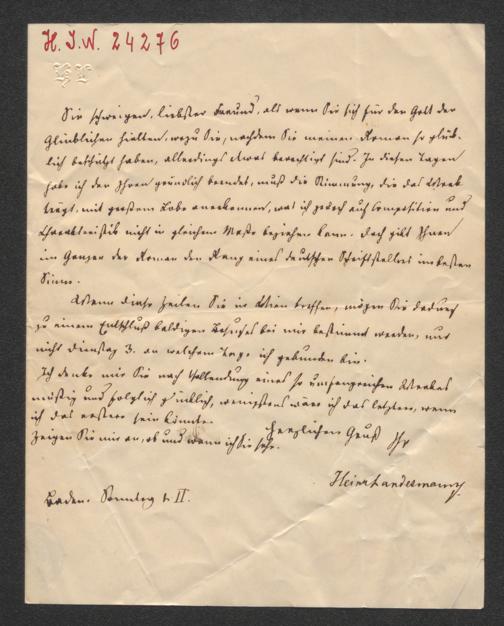 H. I. N. 24276
HL
Sie schweigen, liebster Freund, als wenn Sie sich für den Gott der
Glücklichen hielten, wozu Sie, nachdem Sie meinen Roman so glück-
lich beschützt haben, allerdings etwas berechtigt sind. In diesen Tagen
habe ich den Ihren gründlich beendet, muß die Stimmung, die das Werk
trägt, mit großem Lobe anerkennen, was ich jedoch auf Composition und
Charakteristik nicht in gleichem Maße beziehen kann. Doch gibt Ihnen
im Ganzen der Roman den Rang eines deutschen Schriftstellers im besten
Sinne.
Wenn diese Zeilen Sie in Wien treffen, mögen Sie dadurch
zu einem Entschluß baldigen Besuches bei mir bestimmt werden, nur
nicht Dienstag 3. an welchem Tage ich gebunden bin.
Ich denke mir Sie nach Vollendung eines so umfangreichen Werkes
müßig und folglich glücklich, wenigstens wäre ich das letztere, wenn
ich das erstere sein könnte.
Zeigen Sie mir an, ob und wann ich Sie sehe.
Herzlichen Gruß Ihr
Heinr Landesmann
Baden. Sonntag II.